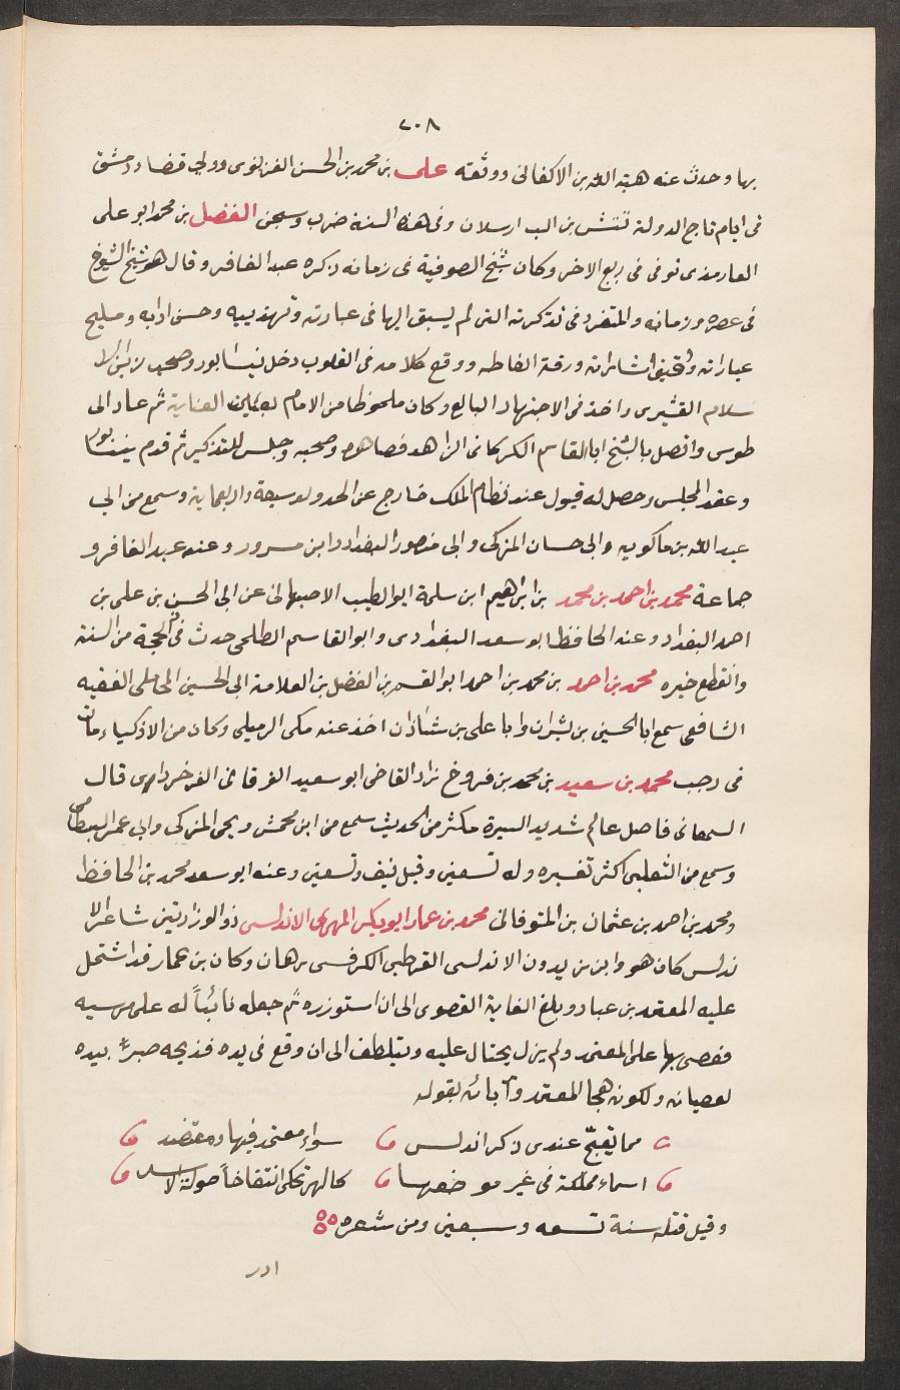 ٢٠٨
بها وحدث عنه هبة الله بن الاكفانى ووثقه على بن محمد بن الحسن الغزنوى وولى قضاء دمشق
فى ايام تاج الدولة تتش بن الب ارسلان وفى هذه السنة ضرب وسجن الفضل بن محمد ابو على
الفارمذى توفى فى ربيع الاخر وكان شيخ الصوفية فى زمانه ذكره عبد الغافر وقال هو شيخ الشيوخ
فى عصره وزمانه والمتفرد فى تذكرته التى لم يسبق اليها فى عبارته وتهذيبه وحسن ادابه ومليح
عباراته ودقيق اشاراته ورقة الفاظه ووقع كلامه فى القلوب دخل نيسابور وصحب زين الا
سلام القشيرى واخذ فى الاجتهاد البالغ وكان ملحوظا من الامام بعين العناية ثم عاد الى
طوس واتصل بالشيخ ابا القاسم الكركانى الزاهد فصاهره وصحبه وجلس للتذكير ثم قدم نيسابور
وعقد المجلس وحصل له قبول عند نظام الملك خارج عن الحد وسمع من ابى
عبد الله بن ماكويه وابى حسان المزكى وابى منصور البغدادد ابن مسرور وعنه عبد الغافر و
جماعة محمد بن احمد بن محمد بن ابراهيم ابن سلمة ابو الطيب الاصبهانى عن ابى الحسن بن على بن
احمد البغداد وعنه الحافظ ابو سعد البغدادى وابو القاسم الطلحى حدث فى ذى الحجة من السنة
وانقطع خبره محمد بن احمد بن محمد بن احمد ابو القسم بن الفضل بن العلامة ابى الحسين المحاملى الفقيه
الشافعى سمع ابا الحسين بن بشران وابا على بن شاذان اخذ عنه مكى الرميلى وكان من الاذكياء مات
فى رجب محمد بن سعيد بن محمد بن فروخ زاد القاضى ابو سعيد الفرخزادى قال
السمعانى فاصل عالم شديد السيرة مكثر من الحديث سمع من ابن محمش ويحى المزكى وابى عمر البسطامى
وسمع من الثعلبى اكثر تفسيره وله تسعين وقيل نيف وتسعين وعنه ابو سعد محمد بن الحافظ
ومحمد بن احمد بن عثمان بن المتوفانى محمد بن عمار ابو بكر المهرى الاندلسى ذو الوزارتين شاعر الا
ندلس كان هو وابن زيدون الاندلسى القرطبى الكفرسى رهان وكان بن عمار قد اشتمل
عليه المعتمد بن عباد وبلغ الغاية القصوى الى ان استوزره ثم جعله نائباً له على مرسيه
فعصى بها على المعتمد ولم يزل يحتال عليه ويتلطف الى ان وقع فى يده فذبحه صبرًا بيده
لعصيانه ولكونه هجا المعتمد وآبائه بقوله
مما يقبح عندى ذكر اندلس سواء معتمد فيها ومعتضد
اسماء مملكة فى غير موضعها كالهر تحكى انتفاخاً صولة الاسد
وقيل قتله سنة تسعه وسبعين ومن شعره
ادر